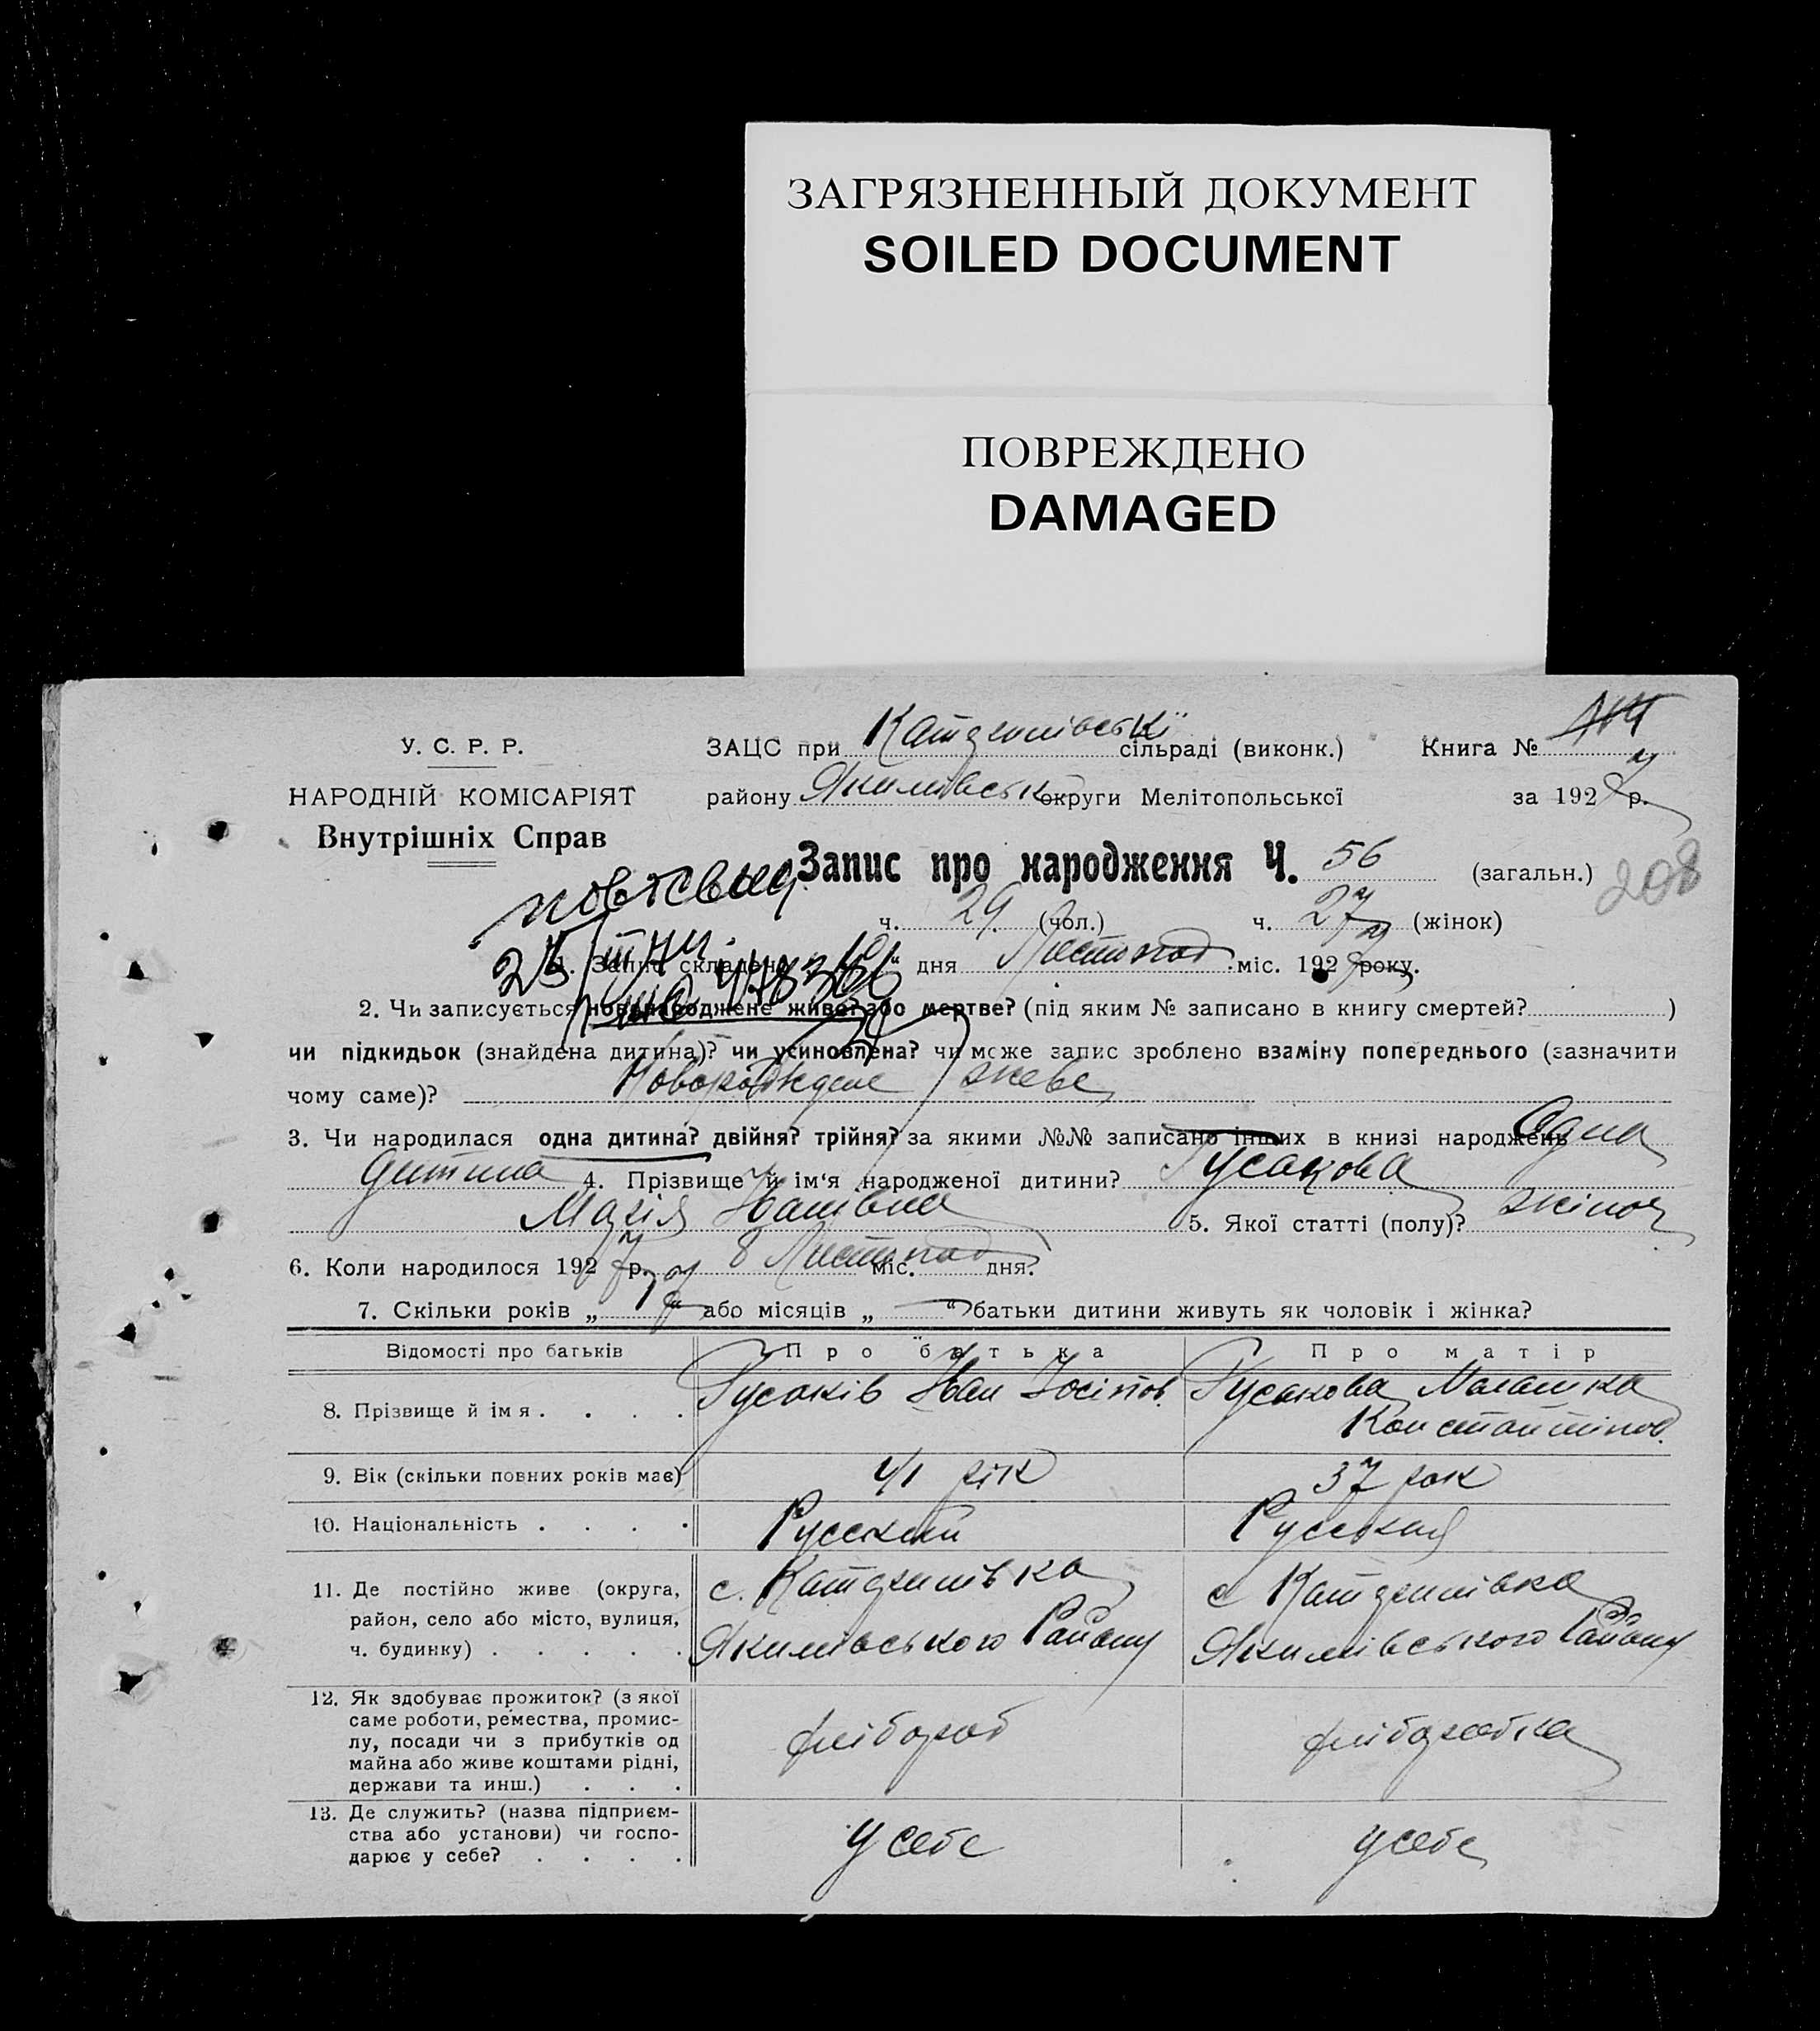 ЗАГРЯЗНЕННЫЙ ДОКУМЕНТ
SOILED DOCUMENT
ПОВРЕЖДЕНО
DAMAGED
У. С. Р. Р.
НАРОДНІЙ КОМІСАРІЯТ
Внутрішніх Справ
ЗАЦС при сільраді (виконк.) Книга №
району Якимівськ округи Мелітопольської за 192 р.
Запис про народження Ч. 56 (загальн.) 208
ч. 29 (чол.) ч. 27 (жінок)
1. Запис складено " " дня Листопад міс. 1927 року.
2. Чи записується новонароджене живе? або мертве? (під яким № записано в книгу смертей? )
чи підкидьок (знайдена дитина)? чи усиновлена? чи може запис зроблено взаміну попереднього (зазначити
чому саме)? Новорождене живе
3. Чи народилася одна дитина? двійня? трійня? за якими №№ записано інших в книзі народжень Одна
дитина 4. Прізвище й ім'я народженої дитини? Гусакова
Марія Іванівна 5. Якої статті (полу)? жіноч
6. Коли народилося 1927 р. 8 Листопад міс. дня?
7. Скільки років „ “ або місяців „ — “ батьки дитини живуть як чоловік і жінка?
Відомості про батьків Про батька Про матір
8. Прізвище й імя . . . . Гусаків Іван Іосіпов. Гусакова Малашка
Константінов.
9. Вік (скільки повних років має) 41 рік 37 рок
10. Національність . . . . Русский Русская
11. Де постійно живе (округа,
район, село або місто, вулиця,
ч. будинку) . . . . .
с.
Якимівського Району
с
Якимівського Району
12. Як здобуває прожиток? (з якої
саме роботи, ремества, промис-
лу, посади чи з прибутків од
майна або живе коштами рідні,
держави та инш.) . . .
хлібороб
хліборобка
13. Де служить? (назва підприєм-
ства або установи) чи госпо-
дарює у себе? . . . .
У себе
у себе